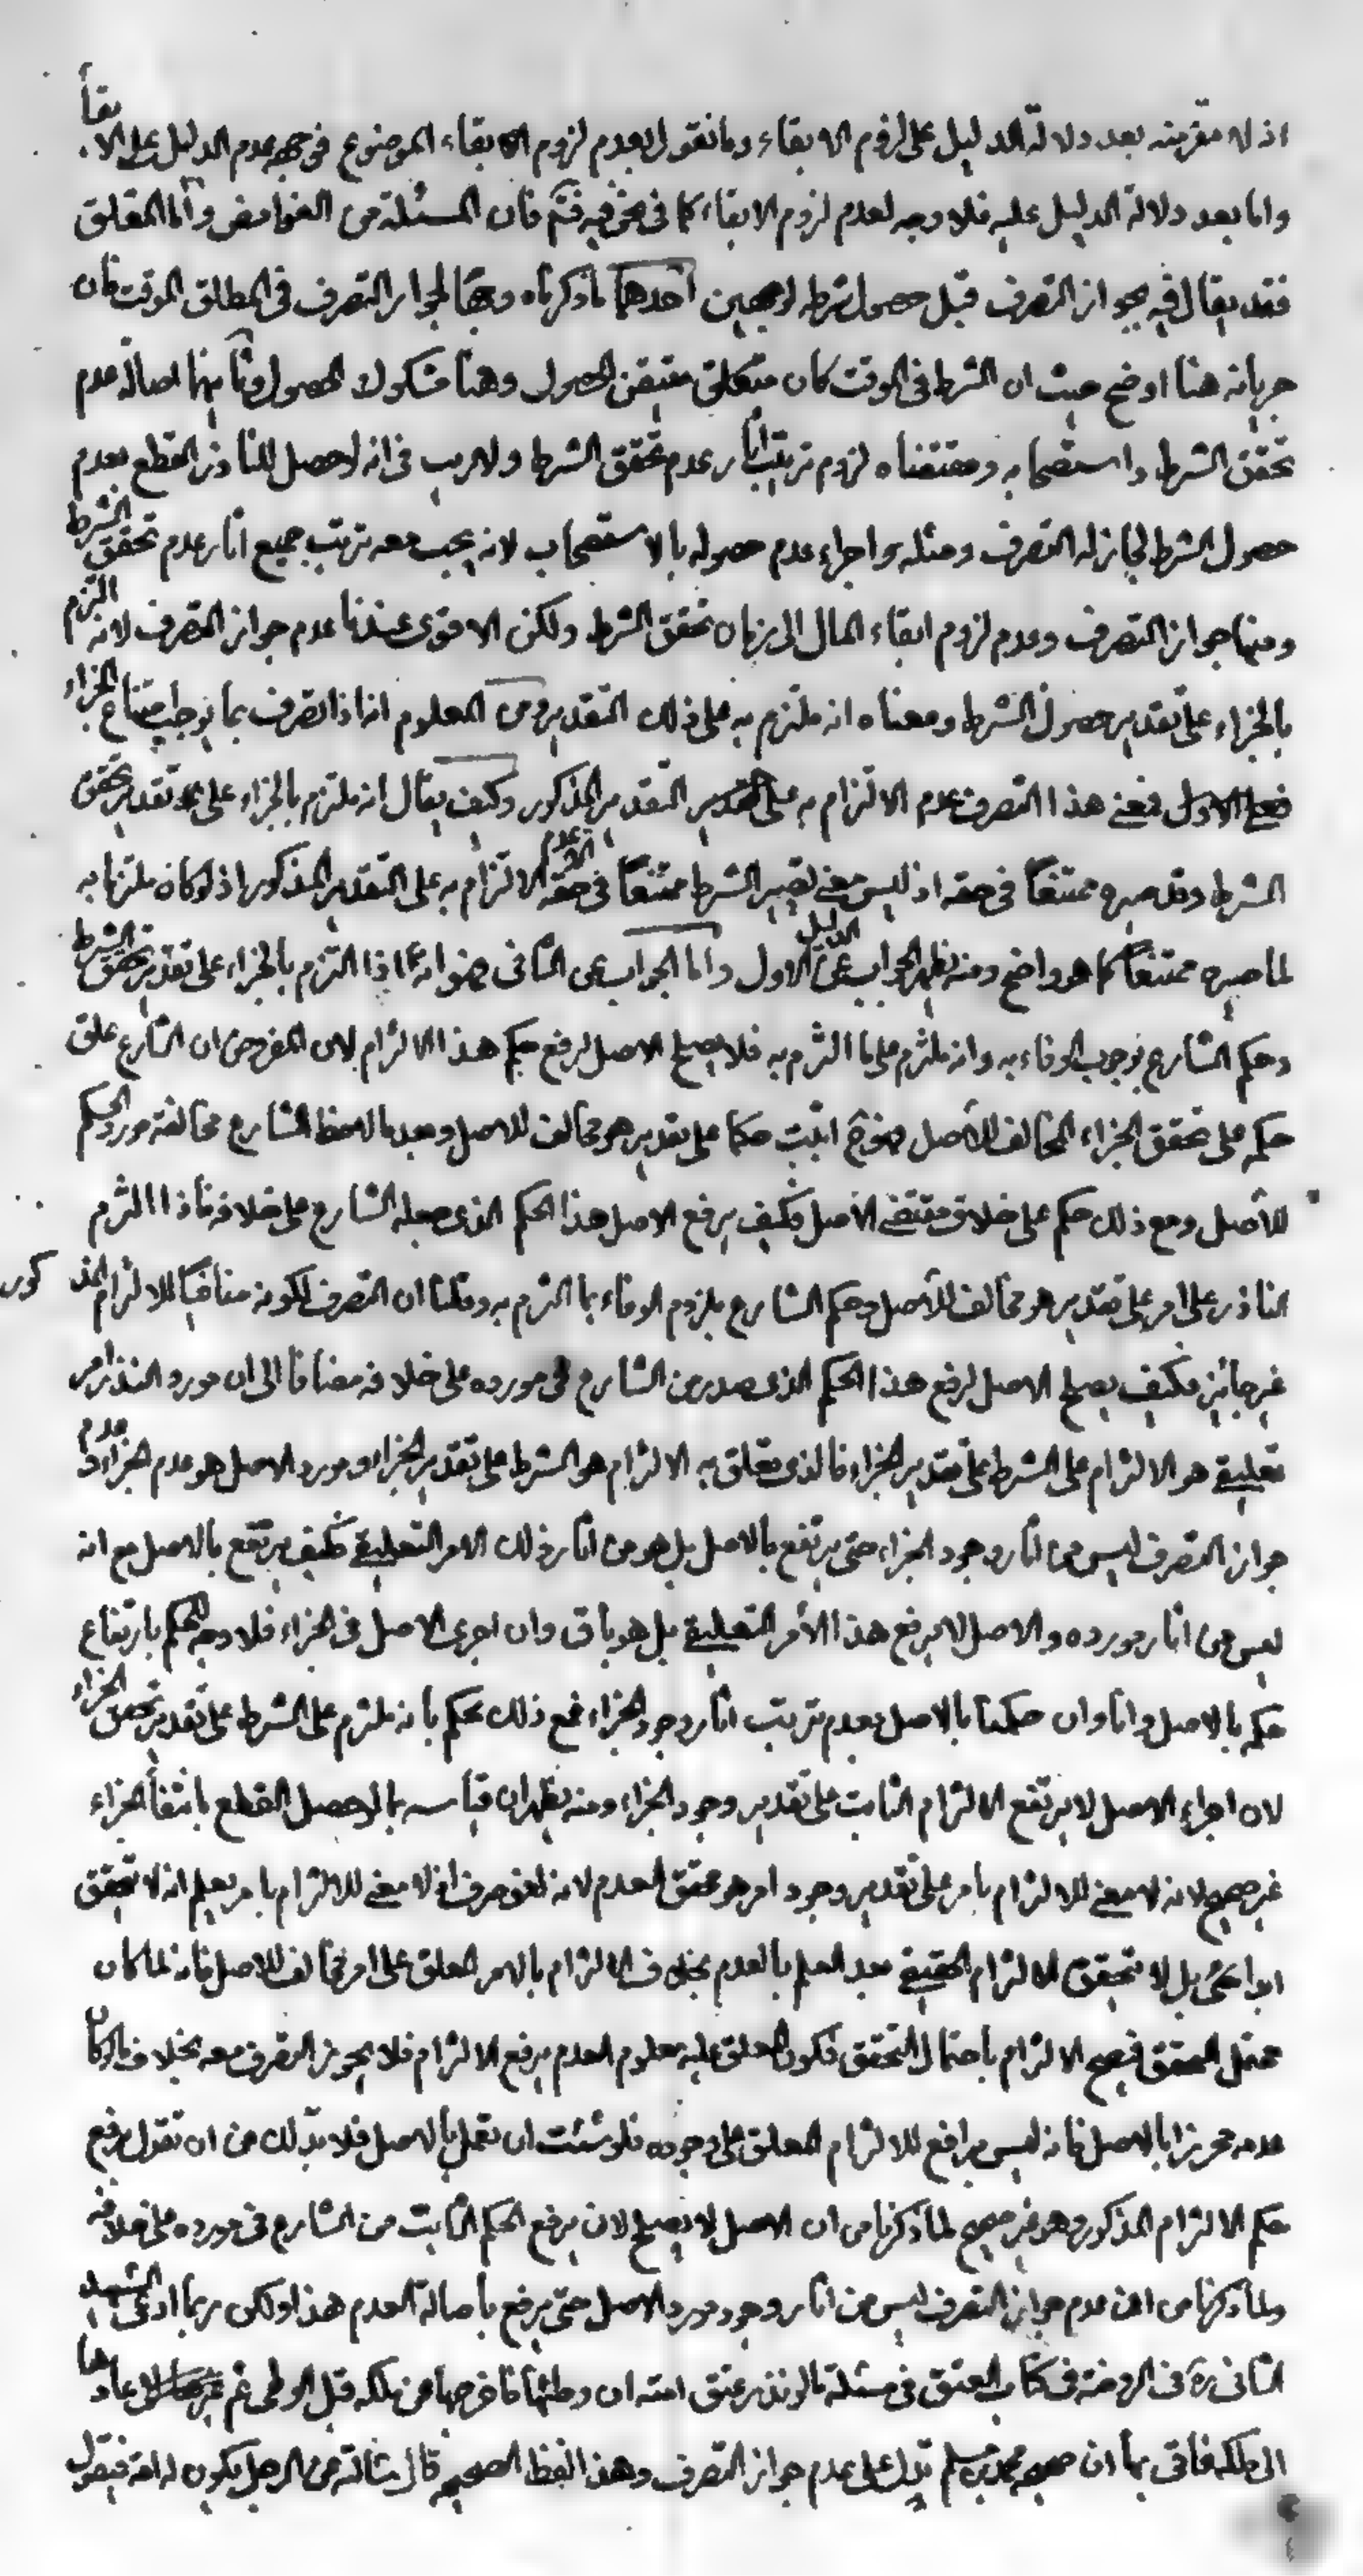 اذ لا مقرمته بعد دلالة الدليل على لزوم الابقاء وما نقول بعدم لزوم الابقاء الموضوع فى جهة عدم الدليل على الابقاء
واما بعد دلالة الدليل عليه فلا وجه لعدم لزوم الابقاء كما فى نحن فيه فتم فان المسئلة من الغوامض واما المعلق
فقد يقال فيه بجواز التصرف قبل حصول شرطه لوجهين احدهما ما ذكرناه وجها لجواز التصرف فى المطلق الموقت فان
جريانه هنا اوضح حيث ان الشرط فى الوقت كان متعلق متيقن الحصول وهنا مشكوك الحصول وثانيهما اصالة عدم
تحقق الشرط واستصحابه ومقتضاه لزوم ترتيب اثار عدم تحقق الشرط ولا ريب فى انه لو حصل للناذر القطع بعدم
حصول الشرط لجاز له التصرف ومثله اجراء عدم حصوله بالاستصحاب لانه يجب معه ترتيب جميع اثار عدم تحقق الشرط
ومنها جواز التصرف وعدم لزوم ابقاء المال الى زمان تحقق الشرط ولكن الاقوى عندنا عدم جواز التصرف لانه التزم
بالجزاء على تقدير حصول الشرط ومعناه انه ملتزم به على ذلك التقدير ومن المعلوم انه اذا تصرف بما يوجب امتناع الجزاء
فمعنى هذا التصرف عدم الالتزام به على التقدير المذكور وكيف يقال انه ملتزم بالجزاء على تقدير تحقق
الشرط وقد صيره ممتنعا فى حقه اذ ليس معنى تصيير الشرط ممتنعا فى حقه الا عدم الالتزام به على التقدير المذكور اذ لو كان ملتزما به
لما صيره ممتنعا كما هو واضح ومنه يظهر الجواب عن الدليل الاول واما الجواب عن الثانى فهو انه اذا التزم بالجزاء على تقدير تحقق الشرط
وحكم الشارع بوجوب الوفاء به وانه ملتزم على ما التزم به فلا يصلح الاصل لرفع حكم هذا الالتزام لان المفروض ان الشارع علق
حكمه على تحقق الجزاء المخالف للاصل فهو ح اثبت حكما على تقدير هو مخالف للاصل وبعد ما لاحظ الشارع مخالفة مورد الحكم
للاصل ومع ذلك حكم على خلاف مقتضى الاصل فكيف يرفع الاصل هذا الحكم الذى جعله الشارع على خلافه فاذا التزم
الناذر على امر على تقدير هو مخالف للاصل وحكم الشارع بلزوم الوفاء بما التزم به وقلنا ان التصرف لكونه منافيا للالتزام المذكور
غير جائز فكيف يصلح الاصل لرفع هذا الحكم الذى صدر من الشارع فى مورده على خلافه مضافا الى ان مورد النذر امر
تعليقى هو الالتزام على الشرط على تقدير الجزاء فالذى تعلق به الالتزام هو الشرط على تقدير الجزاء ومورد الاصل هو عدم الجزاء وعدم
جواز التصرف ليس من اثار وجود الجزاء حتى يرتفع بالاصل بل هو من اثار ذلك الامر التعليقى فكيف يرتفع بالاصل مع انه
ليس من اثار مورده والاصل لا يرفع هذا الامر التعليقى بل هو باق وان اجرى الاصل فى الجزاء فلا وجه للحكم بارتفاع
حكمه بالاصل وانا وان حكمنا بالاصل بعدم ترتب اثار وجود الجزاء فمع ذلك نحكم بانه ملتزم على الشرط على تقدير تحقق الجزاء
لان اجراء الاصل لا يرتفع الالتزام الثابت على تقدير وجود الجزاء ومنه يظهر ان قياسه بما لو حصل القطع بانتفاء الجزاء
غير صحيح لانه لا معنى للالتزام بامر على تقدير وجود امر هو محقق العدم لانه لغو صرف اذ لا معنى للالتزام بامر يعلم انه لا يتحقق
ابدا بل لا يتحقق الالتزام الحقيقى بعد العلم بالعدم بخلاف الالتزام بالامر المعلق على امر مخالف للاصل فانه لما كان
محتمل التحقق فيصح الالتزام باحتمال التحقق فكون المعلق عليه معلوم العدم يرفع الالتزام فلا يجوز التصرف معه بخلاف ما لو كان
عدمه محرزا بالاصل فانه ليس برافع للالتزام المعلق على وجوده فلو شئت ان تعمل بالاصل فلا بد لك من ان تقول برفع
حكم الالتزام المذكور وهو غير صحيح لما ذكرنا من ان الاصل لا يصلح لان يرفع الحكم الثابت من الشارع فى مورده على خلافه
ولما ذكرنا من ان عدم جواز التصرف ليس من اثار وجود مورد الاصل حتى يرفع باصالة العدم هذا ولكن ربما ادعى الشهيد
الثانى ره فى الروضة فى كتاب العتق فى مسئلة ما لو نذر عتق امته ان وطئها فاخرجها عن ملكه قبل الوطى ثم اعادها
الى ملكه فافتى بما ان صحيحة محمد بن مسلم تدل على عدم جواز التصرف وهذا لفظ الصحيحة قال سئلته عن الرجل يكون له امة فيقول